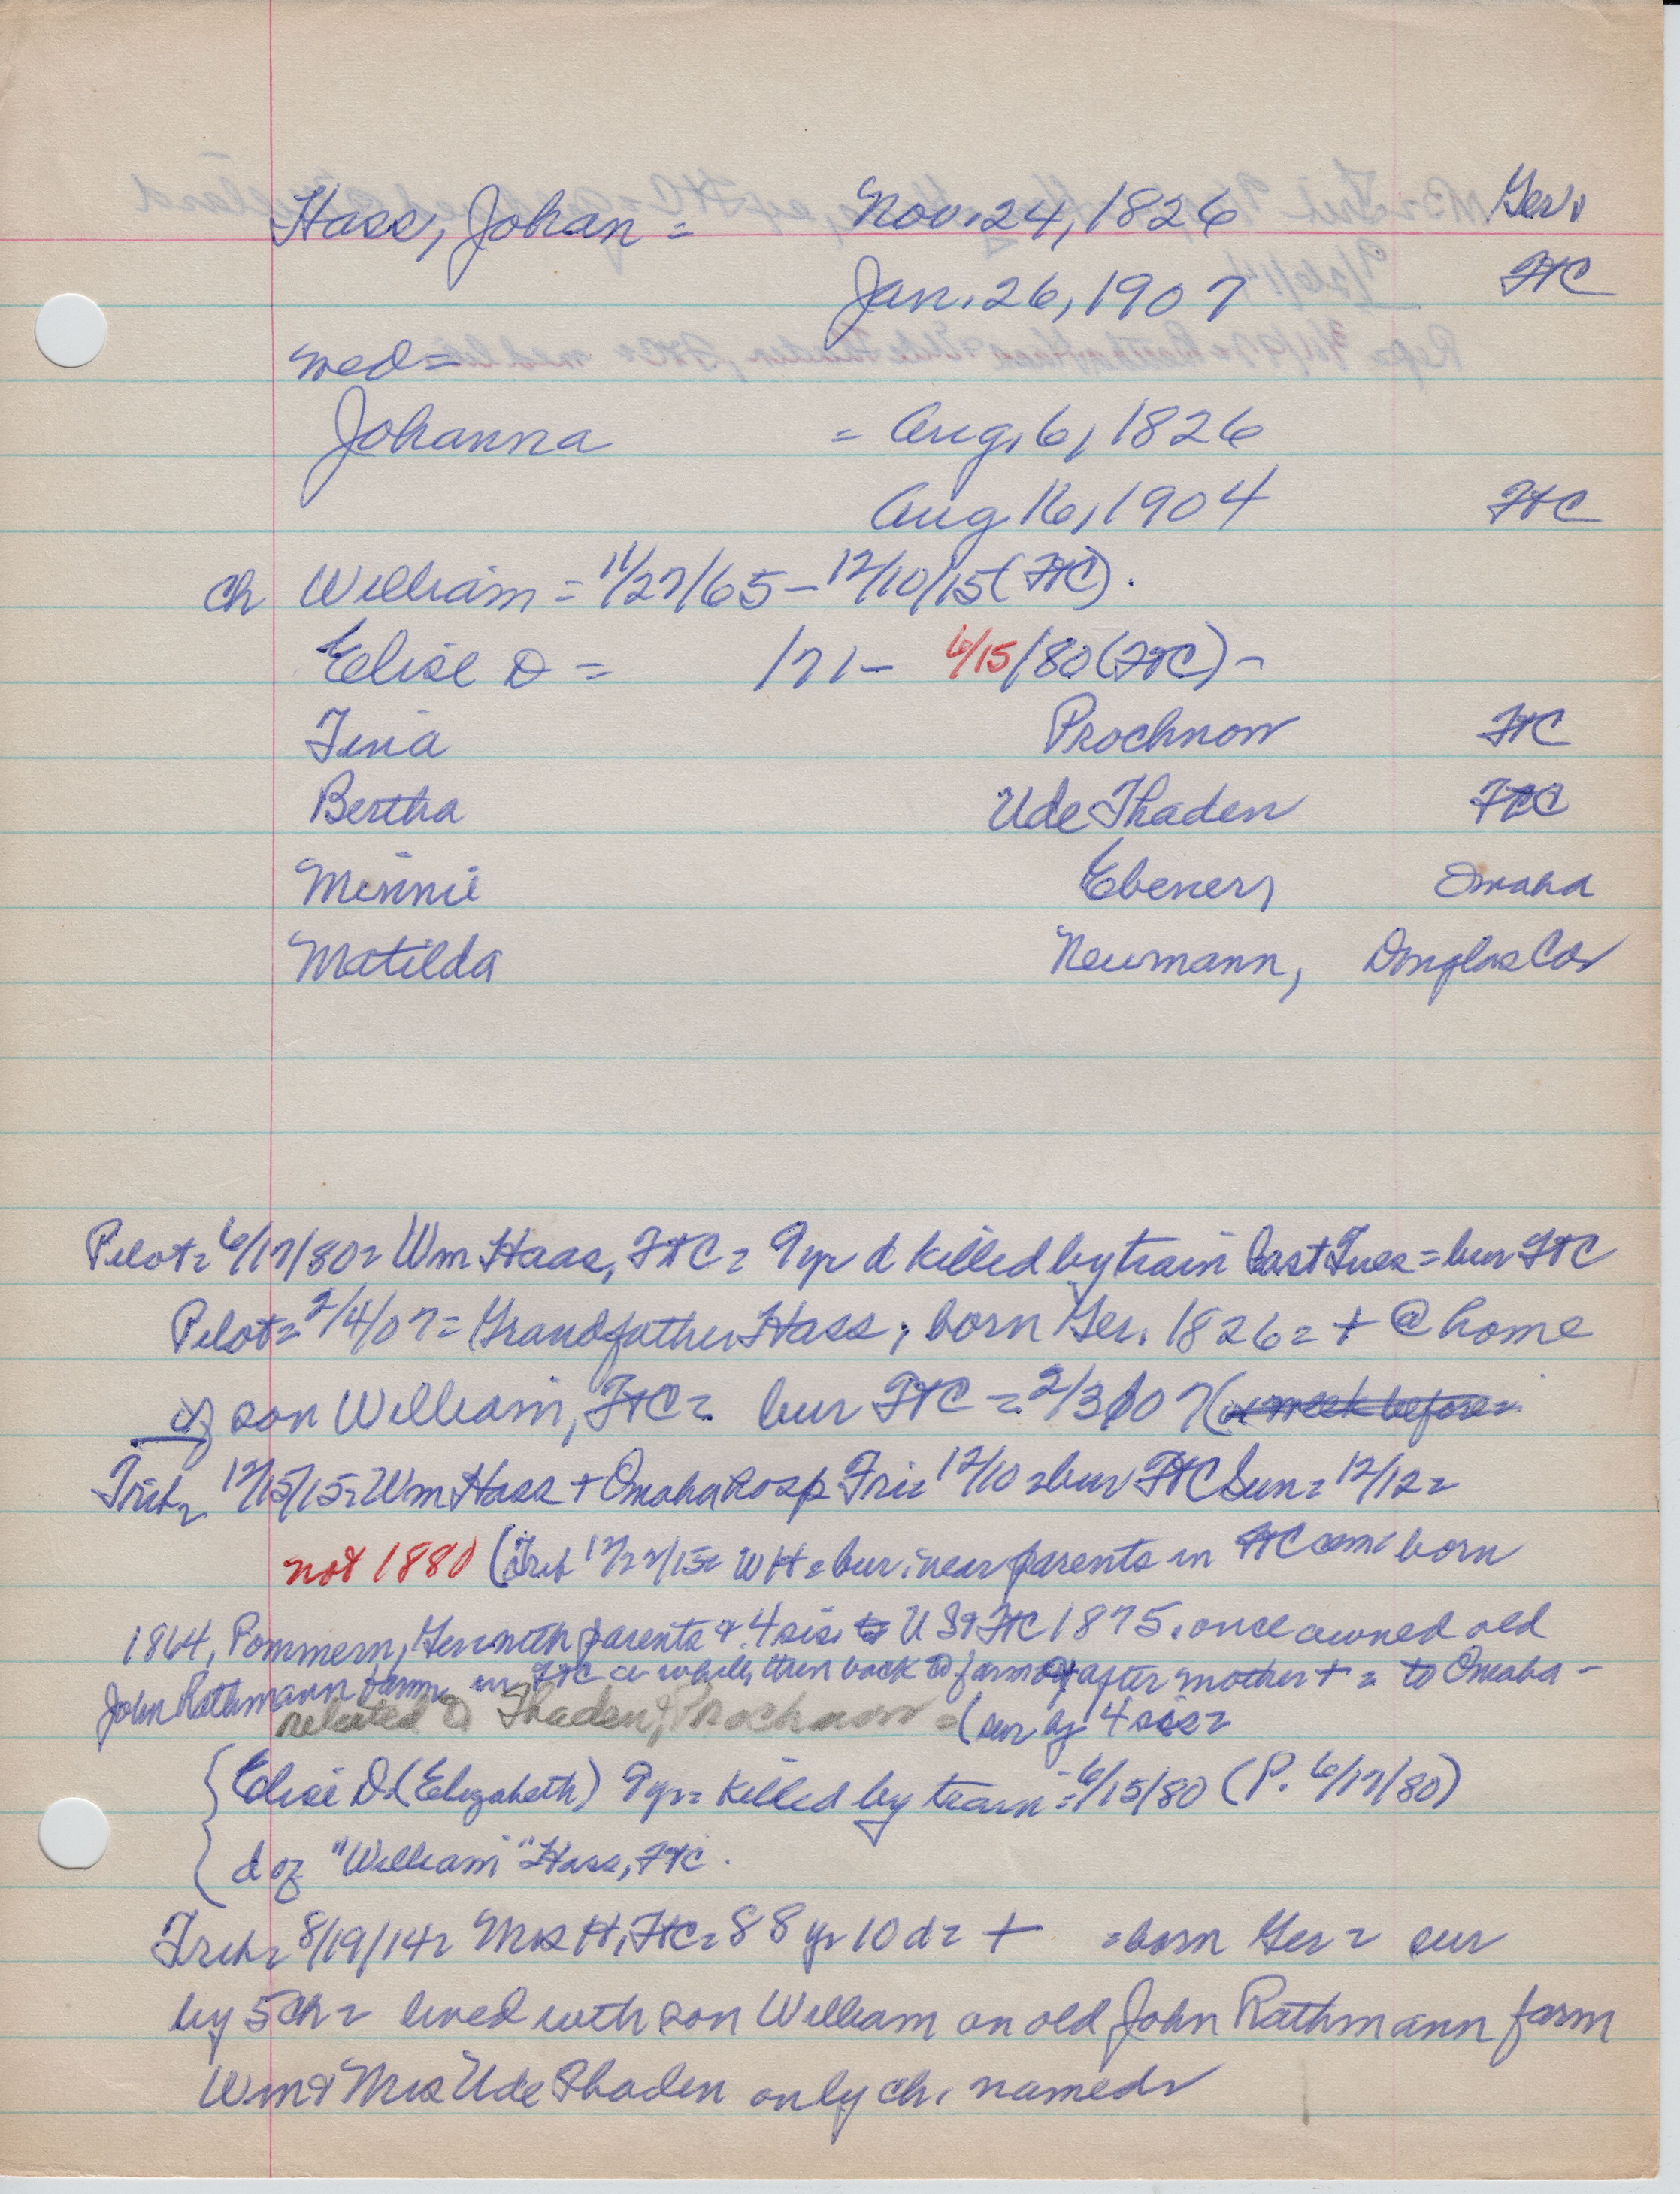 Hass, Johan = Nov. 24, 1826 Ger.
Jan. 26, 1907 FtC
wed =
Johanna = Aug. 6, 1826
Aug. 16, 1904 FtC
ch William = 11/27/65 - 12/10/15 (FtC).
Elise D = /71 - 6/15/80 (FtC) -
Tina Prochnow FtC
Bertha Ude Thaden FtC
Minnie Ebener, Omaha
Matilda Neumann, Douglas Co
Pilot = 6/17/80 = Wm Haas, FtC = 9 yr d killed by train last Tues = bur FtC
Pilot = 2/4/07 = Grandfather Hass, born Ger. 1826 = + @ home
of son William, FtC = bur FtC = 2/3/07 (a week before =
Trib = 12/15/15 = Wm Hass + Omaha hosp Fri = 12/10 = bur FtC Sun = 12/12 =
not 1880 (Trib 12/22/15 = WH = bur. near parents in FtC cem born
1864, Pommern, Ger with parents & 4 sis. to US & FtC 1875. once owned old
John Rathmann farm, in FtC a while, then back to farm after mother + = to Omaha -
related to Thaden, Prochnow = (sur by 4 sis =
Elise D. (Elizabeth) 9 yr = killed by train = 6/15/80 (P. 6/17/80)
d of "William" Hass, FtC.
Trib = 8/19/14 = Mrs H, FtC = 88 yr 10 d = + = born Ger = sur
by 5 ch = lived with son William on old John Rathmann farm
Wm & Mrs Ude Thaden only ch. named